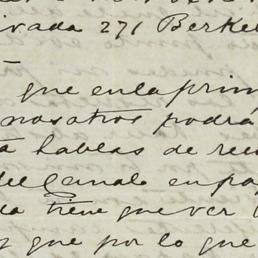 ivada 271 Berkel
que en la prim
nosotros podra
a hablas de reu
del Canal en pa
da tiene que ver
y que por lo que